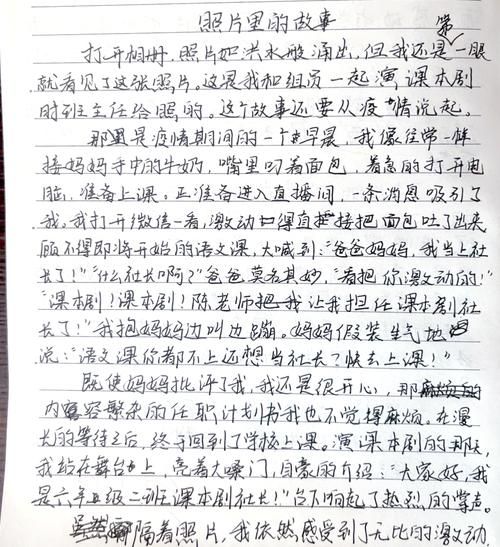 照片里的故事
打开相册,照片如洪水般涌出,但我还是第一眼
就看见了这张照片。这是我和组员一起演课本剧
时班主任给照的。这个故事还要从疫情说起。
那是疫情期间的一个早晨,我像往常一样
接妈妈手中的牛奶,嘴里叼着面包,着急的打开电
脑,准备上课。正准备进入直播间,一条消息吸引了
我。我打开微信一看,激动得直接把面包吐了出来
顾不得即将开始的语文课,大喊到:“爸爸妈妈,我当上社
长了!”“什么社长啊?”爸爸莫名其妙,“看把你激动的!”
“课本剧!课本剧!陈老师把我让我担任课本剧社
长了!”我抱妈妈边叫边蹦。妈妈假装生气地
说:“语文课你都不上还想当社长?快去上课!”
既使妈妈批评了我,我还是很开心,那
内容繁杂的任职计划书我也不觉得麻烦。在漫
长的等待之后,终于回到了学校上课。演课本剧的那天,
我站在舞台上,亮着大嗓门,自豪的介绍:“大家好,我
是六年级二班课本剧社长!”台下响起了热烈的掌声。
隔着照片,我依然感受到了无比的激动,